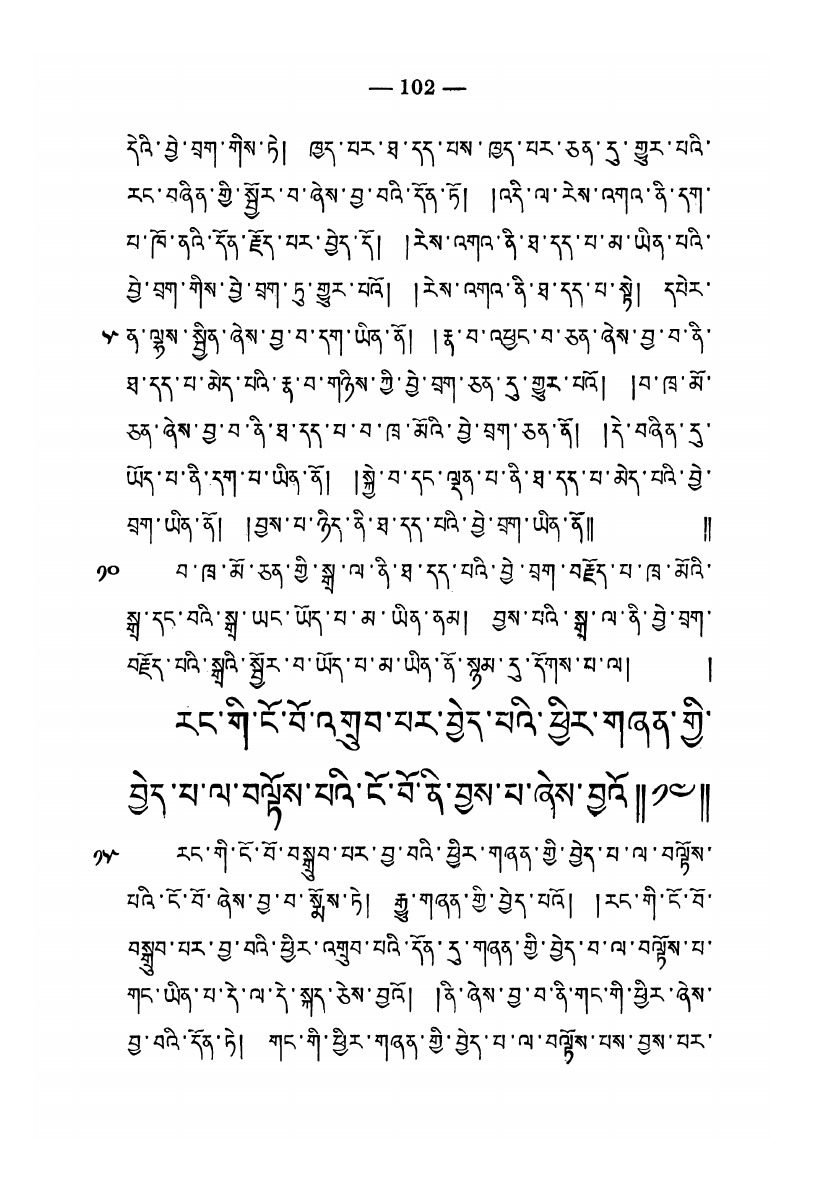 — 102 —
དེའི་བྱེ་བྲག་གིས་ཏེ། ཁྱད་པར་ཐ་དད་པས་ཁྱད་པར་ཅན་དུ་གྱུར་པའི་
རང་བཞིན་གྱི་སྦྱོར་བ་ཞེས་བྱ་བའི་དོན་ཏོ། །འདི་ལ་རེས་འགའ་ནི་དག་
པ་ཁོ་ནའི་དོན་རྗོད་པར་བྱེད་དོ། །རེས་འགའ་ནི་ཐ་དད་པ་མ་ཡིན་པའི་
བྱེ་བྲག་གིས་བྱེ་བྲག་ཏུ་གྱུར་པའོ། །རེས་འགའ་ནི་ཐ་དད་པ་སྟེ། དཔེར་
༥ ན་ལྷས་སྦྱིན་ཞེས་བྱ་བ་དག་ཡིན་ནོ། །རྣ་བ་འཕྱང་བ་ཅན་ཞེས་བྱ་བ་ནི་
ཐ་དད་པ་མེད་པའི་རྣ་བ་གཉིས་ཀྱི་བྱེ་བྲག་ཅན་དུ་གྱུར་པའོ། །བ་ཁྲ་མོ་
ཅན་ཞེས་བྱ་བ་ནི་ཐ་དད་པ་བ་ཁྲ་མོའི་བྱེ་བྲག་ཅན་ནོ། །དེ་བཞིན་དུ་
ཡོད་པ་ནི་དག་པ་ཡིན་ནོ། །སྐྱེ་བ་དང་ལྡན་པ་ནི་ཐ་དད་པ་མེད་པའི་བྱེ་
བྲག་ཡིན་ནོ། །བྱས་པ་ཉིད་ནི་ཐ་དད་པའི་བྱེ་བྲག་ཡིན་ནོ༎ ༎
༡༠ བ་ཁྲ་མོ་ཅན་གྱི་སྒྲ་ལ་ནི་ཐ་དད་པའི་བྱེ་བྲག་བརྗོད་པ་ཁྲ་མོའི་
སྒྲ་དང་བའི་སྒྲ་ཡང་ཡོད་པ་མ་ཡིན་ནམ། བྱས་པའི་སྒྲ་ལ་ནི་བྱེ་བྲག་
བརྗོད་པའི་སྒྲའི་སྦྱོར་བ་ཡོད་པ་མ་ཡིན་ནོ་སྙམ་དུ་དོགས་པ་ལ། །
རང་གི་ངོ་བོ་འགྲུབ་པར་བྱེད་པའི་ཕྱིར་གཞན་གྱི་
བྱེད་པ་ལ་བལྟོས་པའི་ངོ་བོ་ནི་བྱས་པ་ཞེས་བྱའོ༎༡༤༎
༡༥ རང་གི་ངོ་བོ་བསྒྲུབ་པར་བྱ་བའི་ཕྱིར་གཞན་གྱི་བྱེད་པ་ལ་བལྟོས་
པའི་ངོ་བོ་ཞེས་བྱ་བ་སྨོས་ཏེ། རྒྱུ་གཞན་གྱི་བྱེད་པའོ། །རང་གི་ངོ་བོ་
བསྒྲུབ་པར་བྱ་བའི་ཕྱིར་འགྲུབ་པའི་དོན་དུ་གཞན་གྱི་བྱེད་བ་ལ་བལྟོས་པ་
གང་ཡིན་པ་དེ་ལ་དེ་སྐད་ཅེས་བྱའོ། །ནི་ཞེས་བྱ་བ་ནི་གང་གི་ཕྱིར་ཞེས་
བྱ་བའི་དོན་ཏེ། གང་གི་ཕྱིར་གཞན་གྱི་བྱེད་པ་ལ་བལྟོས་པས་བྱས་པར་